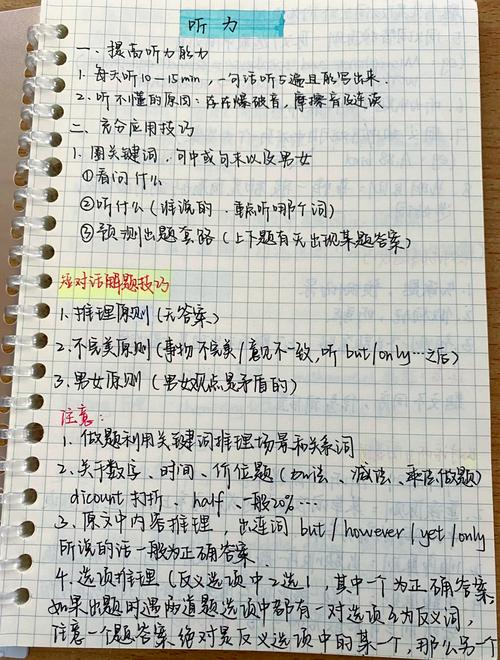 听力
一、提高听力能力
1. 每天听10-15min，一句话听5遍且能写出来.
2. 听不懂的原因：存在爆破音，摩擦音及连读
二、充分应用技巧
1. 圈关键词，句中或句末以及男女
①看问什么
②听什么（谁说的．重点听哪个词）
③预测出题套路（上下题有无出现某题答案）
短对话解题技巧
1. 推理原则（无答案）
2. 不完美原则（事物不完美/意见不一致，听but/only…之后）
3. 男女原则（男女观点是矛盾的）
注意：
1. 做题利用关键词推理场景和关系词
2. 关于数字、时间、价位题（加法、减法、乘法做题）
dicount 打折、half、一般20%…
3. 原文中内容推理，出连词 but/however/yet/only
所说的话一般为正确答案.
4. 选项推理（反义选项中2选1，其中一个为正确答案
如果出题时遇两道题选项中都有一对选项互为反义词，
注意一个题答案绝对是反义选项中的某一个，那么另一个